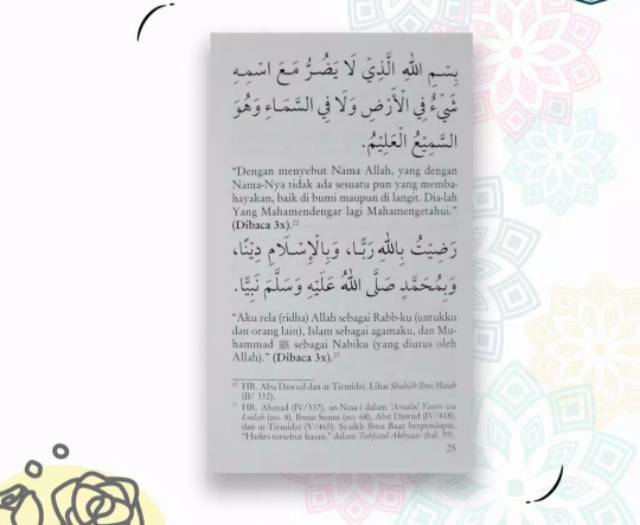 بِسْمِ اللهِ الَّذِيْ لَا يَضُرُّ مَعَ اسْمِهِ
شَيْءٌ فِي الْأَرْضِ وَلَا فِي السَّمَاءِ وَهُوَ
السَّمِيْعُ الْعَلِيْمُ.
"Dengan menyebut Nama Allah, yang dengan
Nama-Nya tidak ada sesuatu pun yang memba-
hayakan, baik di bumi maupun di langit. Dia-lah
Yang Mahamendengar lagi Mahamengetahui."
(Dibaca 3x).²²
رَضِيْتُ بِاللهِ رَبًّا، وَبِالْإِسْلَامِ دِيْنًا،
وَبِمُحَمَّدٍ صَلَّى اللهُ عَلَيْهِ وَسَلَّمَ نَبِيًّا.
"Aku rela (ridha) Allah sebagai Rabb-ku (untukku
dan orang lain), Islam sebagai agamaku, dan Mu-
hammad ﷺ sebagai Nabiku (yang diutus oleh
Allah)." (Dibaca 3x).²³
²² HR. Abu Dawud dan at-Tirmidzi. Lihat Shahiih Ibnu Majah
(II/ 332).
HR. Ahmad (IV/337), an-Nasa-i dalam 'Amalul Yaum wa
Lailah (no. 4), Ibnus Sunni (no. 68), Abu Dawud (IV/418),
dan at-Tirmidzi (V/465). Syaikh Ibnu Baaz berpendapat,
"Hadits tersebut hasan," dalam Tuhfatul Akhyaar (hal. 39).
25